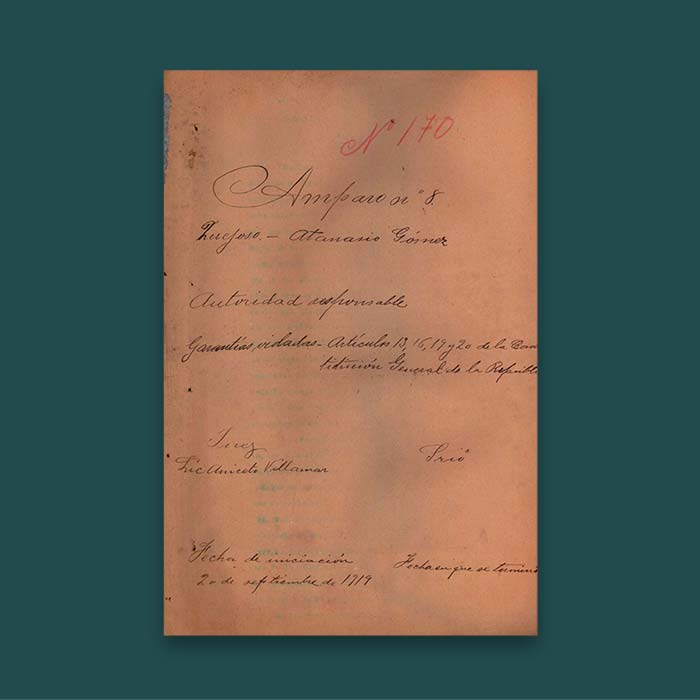 Nº 170
Amparo nº 8.
Quejoso.— Atanasio Gómez
Autoridad responsable
Garantías violadas— Artículos 13, 16, 19 y 20 de la Cons
titución General de la Republi
Juez
Lic Aniceto Villamar
Srioº
Fecha de iniciación
20 de septiembre de 1919
Fecha en que se terminó